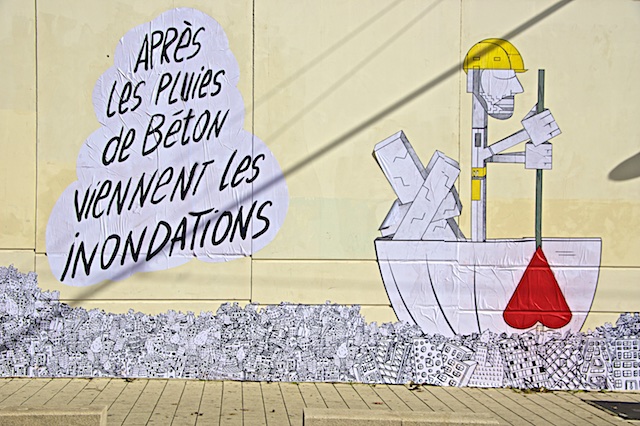 APRÈS
LES PLUIES
de BÉTON
VIENNENT Les
INONDATIONS